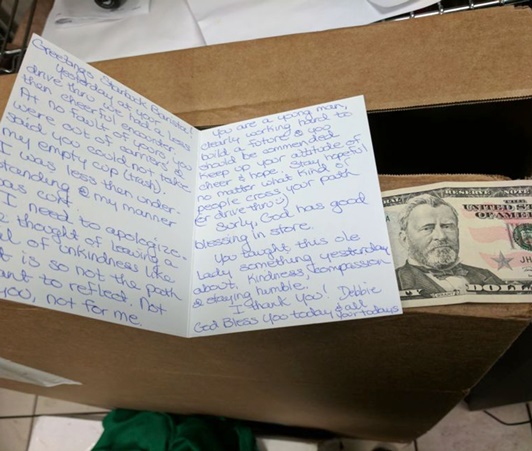 Greetings Starbuck Barista!
Yesterday at your
drive thru we had a less
then cheerful encounter.
At no fault of yours, you
were out of carriers &
said you could not take
my empty cup (trash).
I was less then under-
standing & my manner
was curt.
I need to apologize.
thought of leaving a
of unkindness like
it is so not the path
want to reflect. Not
you, not for me.
You are a young man,
clearly working hard to
build a future & you
should be commended.
keep up your attitude of
cheer & hope. Stay hopeful
no matter what kind of
people cross your path
(or drive thru)
Surly, God has good
blessing in store.
You taught this ole
lady something yesterday
about, kindness, compassion
& staying humble.
I thank you! Debbie
God Bless You today & all your todays
RESERVE NOTE
THE
UNITED STATES
OF AMERICA
JH
TY DOLL